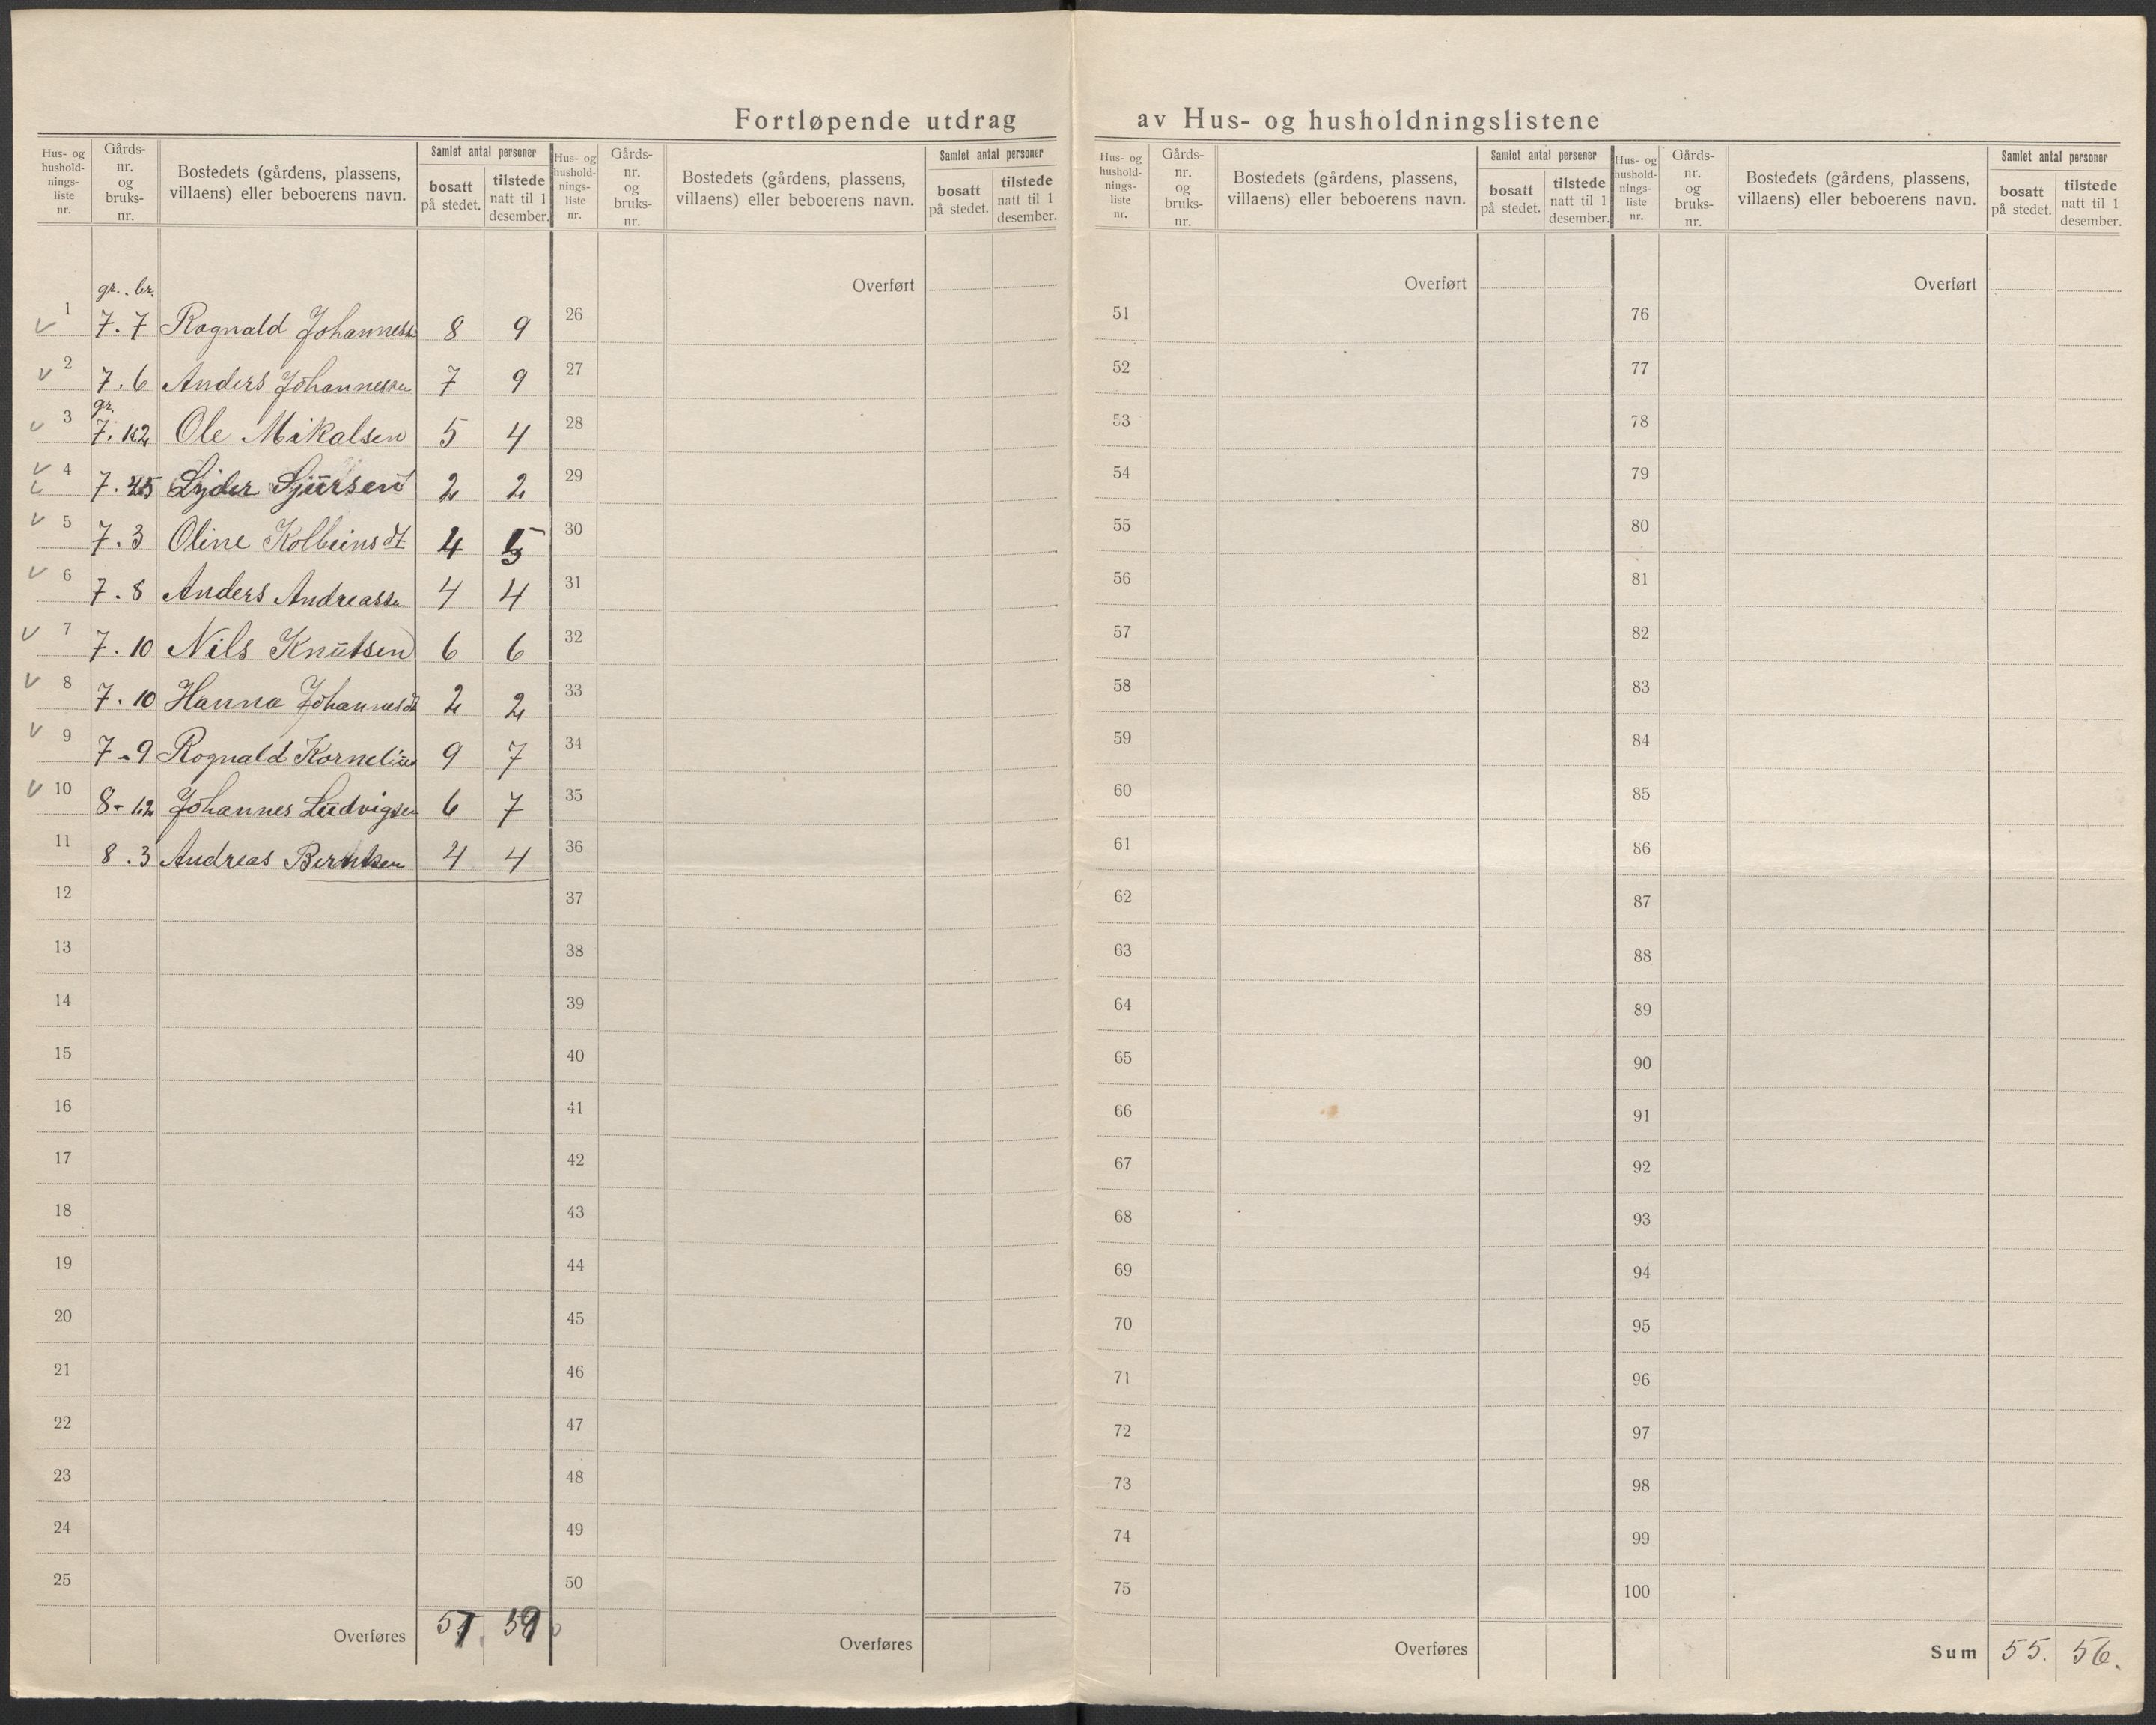 Fortløpende utdrag av Hus- og husholdningslistene
Hus- og hushold- nings- liste nr.
Gårds- nr. og bruks- nr.
Bostedets (gårdens, plassens, villaens) eller beboerens navn.
Samlet antal personer
bosatt på stedet.
tilstede natt til 1 desember.
Hus- og hushold- nings- liste nr.
Gårds- nr. og bruks- nr.
Bostedets (gårdens, plassens, villaens) eller beboerens navn.
Samlet antal personer
bosatt på stedet.
tilstede natt til 1 desember.
Hus- og hushold- nings- liste nr.
Gårds- nr. og bruks- nr.
Bostedets (gårdens, plassens, villaens) eller beboerens navn.
Samlet antal personer
bosatt på stedet.
tilstede natt til 1 desember.
Hus- og hushold- nings- liste nr.
Gårds- nr. og bruks- nr.
Bostedets (gårdens, plassens, villaens) eller beboerens navn.
Samlet antal personer
bosatt på stedet.
tilstede natt til 1 desember.
gr. br.
1 7.7 Rognald Johannessen 8 9
2 7.6 Anders Johannessen 7 9
gr.
3 7. Ole Mikalsen 5 4
4 7. Lyder Sjursen 2 2
5 7.3 Oline Kolbeinsdt 4 5
6 7.8 Anders Andreassen 4 4
7 7.10 Nils Knutsen 6 6
8 7.10 Hanna Johannesdt 2 2
9 7-9 Rognald Kornelius 9 7
10 8-12 Johannes Ludvigsen 6 7
11 8.3 Andreas Berntsen 4 4
12
13
14
15
16
17
18
19
20
21
22
23
24
25
Overføres 57. 59
Overført
26
27
28
29
30
31
32
33
34
35
36
37
38
39
40
41
42
43
44
45
46
47
48
49
50
Overføres
Overført
51
52
53
54
55
56
57
58
59
60
61
62
63
64
65
66
67
68
69
70
71
72
73
74
75
Overføres
Overført
76
77
78
79
80
81
82
83
84
85
86
87
88
89
90
91
92
93
94
95
96
97
98
99
100
Sum 55. 56.